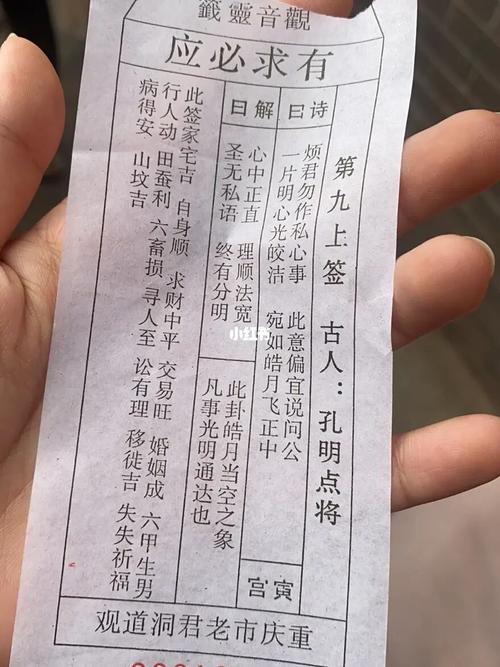 觀音靈籤
有求必应
第九上签 古人：孔明点将
诗曰
烦君勿作私心事 此意偏宜说问公
一片明心光皎洁 宛如皓月飞正中
寅宫
解曰
心中正直 理顺法宽
圣无私语 终有分明
此卦皓月当空之象
凡事光明通达也
此签家宅吉 自身顺 求财中平 交易旺 婚姻成 六甲生男
行人动 田蚕利 六畜损 寻人至 讼有理 移徙吉 失失祈福
病得安 山坟吉
重庆市老君洞道观
小红书